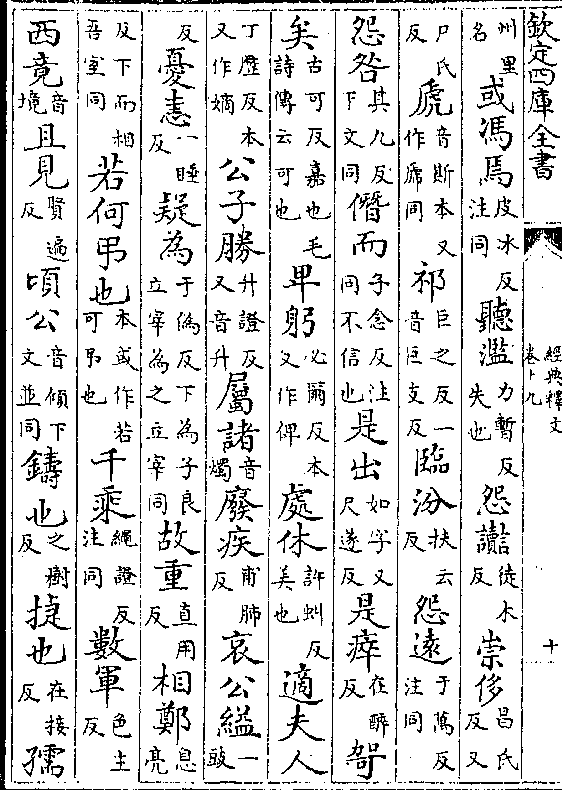 欽定四庫全書 經典釋文卷十九 十
州里名 或馮焉 皮冰反注同 聽濫 力暫反失也 怨讟 徒木反 崇侈 昌氏反又
尸氏反 虒 音斯本又作㡯同 祁 巨之反一音巨支反 臨汾 扶云反 怨遠 于萬反注同
怨咎 其九反下文同 僭而 子念反注同不信也 是出 如字又尺遂反 是瘁 在醉反 哿
矣 古可反嘉也毛詩傳云可也 卑躬 必爾反本又作俾 處休 許虯反美也 適夫人
丁歷反本又作嫡 公子勝 升證反又音升 屬諸 音燭 廢疾 甫肺反 哀公縊 一豉
反 憂恚 一睡反 疑為 于偽反下為子良立宰為之立宰同 故重 直用反 相鄭 息亮
反下而相吾室同 若何弔也 本或作若可弔也 千乘 繩證反注同 數軍 色主反
西竟 音境 且見 賢遍反 頃公 音傾下文並同 鑄也 之樹反 捷也 在接反 孺